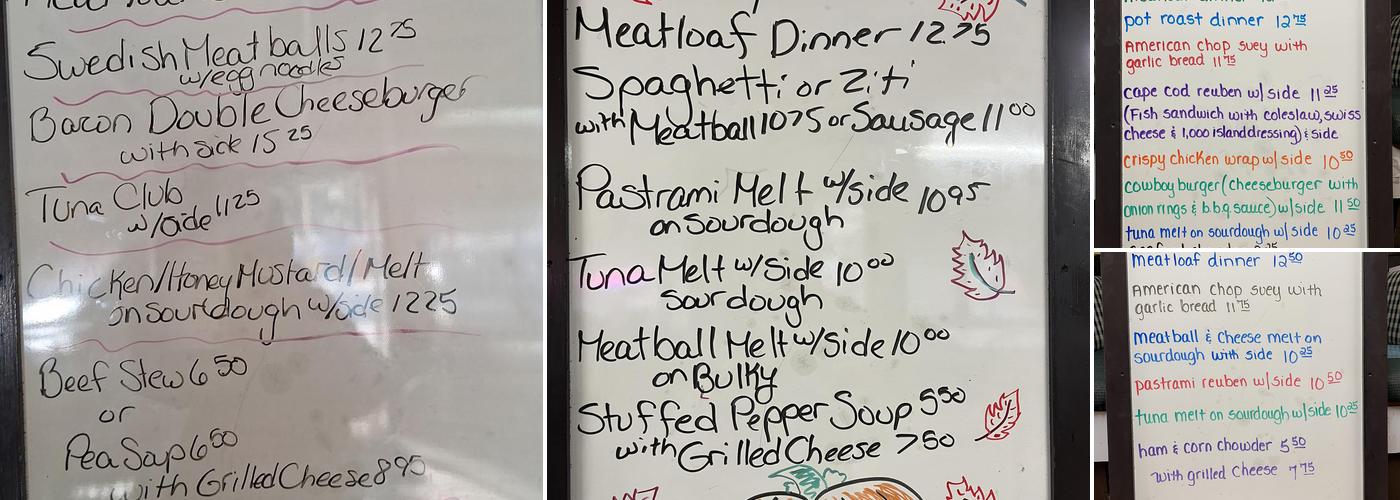 Swedish Meatballs 12 75
w/egg noodles
Bacon Double Cheeseburger
with side 15 25
Tuna Club
w/side 11 25
Chicken/Honey Mustard/Melt
on sourdough w/side 12 25
Beef Stew 6 50
or
Pea Soup 6 50
with Grilled Cheese 8 95
Meatloaf Dinner 12.75
Spaghetti or Ziti
with Meatball 10 75 or Sausage 11 00
Pastrami Melt w/side 10 95
on sourdough
Tuna Melt w/side 10 00
sourdough
Meatball Melt w/side 10 00
on Bulky
Stuffed Pepper Soup 5 50
with Grilled Cheese 7 50
pot roast dinner 12 75
American chop suey with
garlic bread 11 75
cape cod reuben w/ side 11 25
(Fish sandwich with coleslaw, swiss
cheese & 1,000 island dressing) & side
crispy chicken wrap w/ side 10 50
cowboy burger (cheeseburger with
onion rings & b.b.q. sauce) w/ side 11 50
tuna melt on sourdough w/ side 10 25
meatloaf dinner 12 50
American chop suey with
garlic bread 11 75
meatball & cheese melt on
sourdough with side 10 25
pastrami reuben w/ side 10 50
tuna melt on sourdough w/ side 10 25
ham & corn chowder 5 50
with grilled cheese 7 75